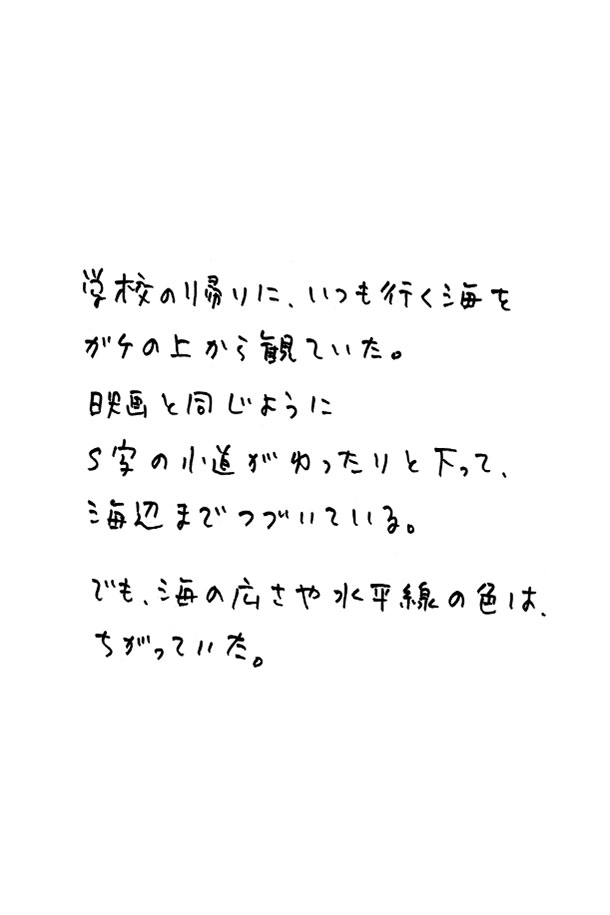 学校の帰りに、いつも行く海を
ガケの上から観ていた。
映画と同じように
S字の小道がゆったりと下って、
海辺までつづいている。
でも、海の広さや水平線の色は、
ちがっていた。